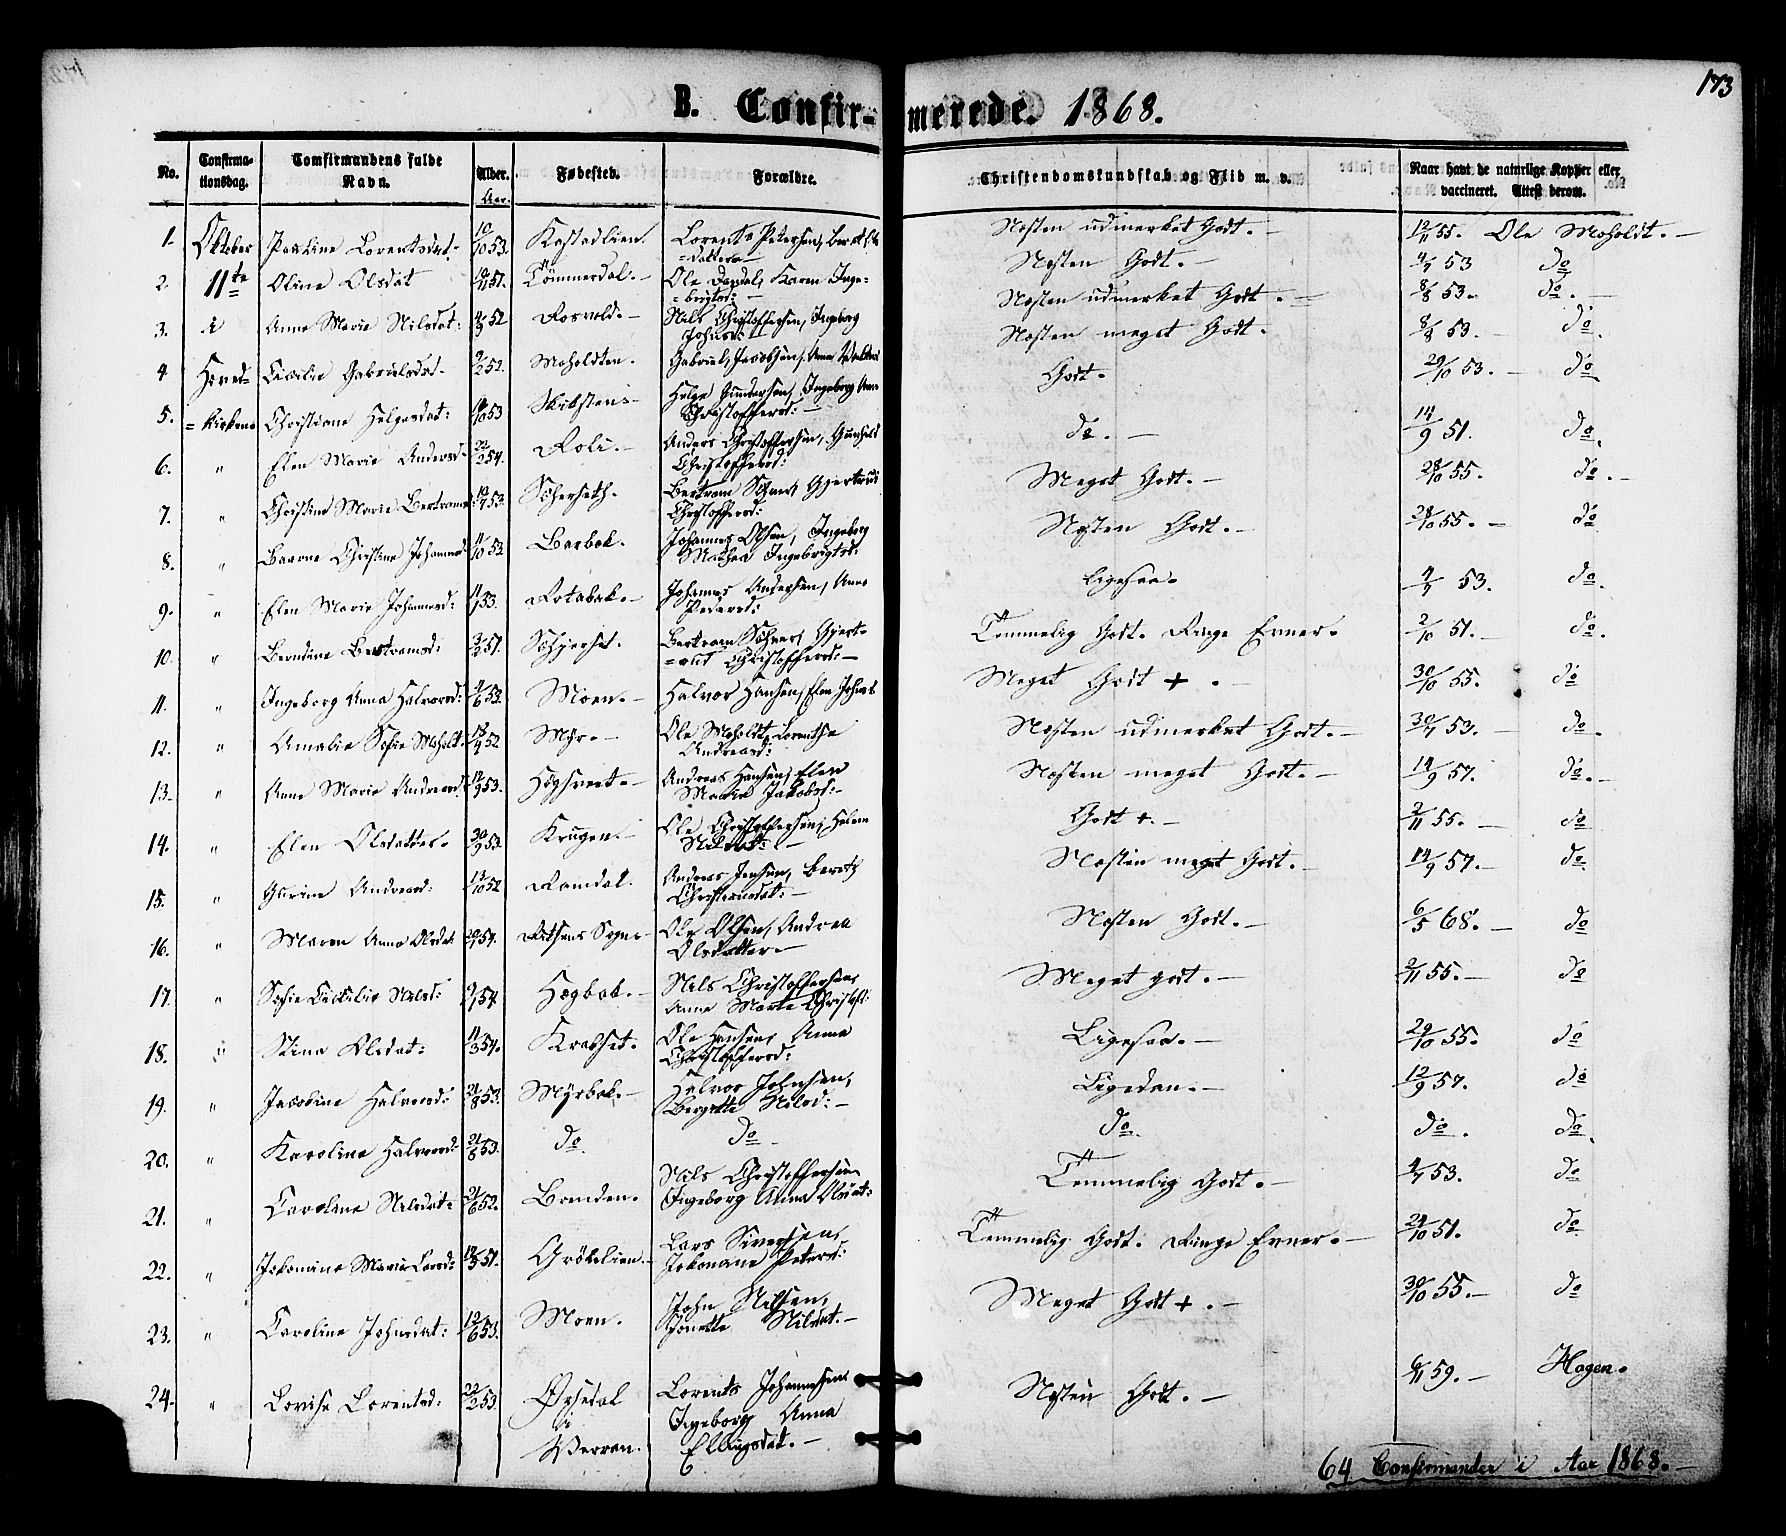 173
B. Confir- merede. 1868.
No. Confirma- tionsdag. Comfirmandens fulde Navn. Alder. Aar. Fødested. Forældre. Christendomskundskab og Flid m. v. Naar havt de naturlige Kopper eller vaccineret. Attest derom.
1. Oktober Pauline Lorentsdat. 10/10 53. Lorents Petersen, Næsten udmerket Godt. — 12/11 55. Ole Moholdt. —
2. 11te Oline Olsdat Tömmerdal. — Ole Karen Inge-
=brigtsd: — Næsten Godt. — 4/7 53 do
3. i Anne Marie Nilsdat: Rosvold. — Nils Christoffersen, Ingeborg
Johnsd: Næsten udmerket Godt. — 8/8 53. do. —
4 Hoved= Cecilie Gabrielsdat. 9/2 52. Moholdten. Gabriel Jacobsen, Anne Næsten meget Godt. 8/8 53. — do.
5. =kirken Christiane Helgesdat: 10/10 53 Skikstens- Helge Gundersen, Ingeborg Anna
Christoffersd: — Godt. 29/10 53. — do.
6. " Elen Marie Andersd. 22/2 54. Roli. — Anders Christoffersen, Gunhild
Christoffersd: do. — 14/9 51. do.
7. " Christine Marie Bertrams Bertram Gjertrud
Christoffersd: Meget Godt. — 28/10 55. do. —
8. " Christine Johannesd. 11/10 52 Barbak. Johannes Olsen, Ingeborg
Mathea Ingebrigtsd: Næsten Godt. — 28/10 55. — do
9. " Elen Marie Johannesd: Rotabak. — Johannes Andersen, Anne
Pedersd: Ligesaa. 4/7 53. do.
10. " Berndine Bertramsd: Bertram Gjert-
=rud Christoffersd: — Temmelig Godt. Ringe Evner. 2/10 51. — do.
11. " Ingeborg Anna Halvorsd: 4/6 53. Moen. — Halvor Hansen, Elen Johnsd Meget Godt + . — 30/10 55. do
12. " Amalie Sofie Moholdt. Myr. — Ole Moholdt, Lorentse
Andreasd: Næsten udmerket Godt. — 30/7 53. — do.
13. " Anne Marie Andreasd. 12/9 53. Andreas Hansen, Elen
Marie Jakobsd: — Næsten meget Godt. — 14/9 57. do. —
14. " Elen Olsdatter. 30/9 53. Krugen. — Ole Christoffersen, Helene
Nilsdat: — Godt +. — 2/11 55. — do
15. " Gurine Andreasd: 13/10 52 Ramdal. Andreas Jensen, Bereth
Christensdat: — Næsten meget Godt. — 14/9 57. — do
16. " Maren Anna Olsdat Ritsens Sogn Ole Olsen, Andrea
Olsdatter — Næsten Godt. — 6/5 68. — do
17. " Sofie Nilsd: Hægbak. — Nils Christoffersen,
Anne Marte Christoff: Meget godt. — 2/11 55. — do
18. " Stina Olsdat: 11/3 54. Krabset. Ole Hansen, Anna
Christoffersd: Ligesaa. — 29/10 55. do
19. " Jacobine Halvorsd: 21/8 53. Myrbak. — Halvor Johnsen,
Bergitte Nilsd: — Ligedan. — 12/9 57. do
20. " Karoline Halvorsd: 21/8 53. do do do. do. do.
21. " Caroline Nilsdat: 21/6 52. Bomden. Nils Christoffersen
Ingeborg Anna Olsdat: Temmelig Godt. — 4/7 53. do
22. " Marie Larsd: Grökelien. — Lars Siversen,
Petersd: Temmelig Godt. Ringe Evner. — 24/10 51. do
23. " Caroline Johnsdat: 12/6 53. Moen. John Nilsen,
Jonette Nilsdat. — Meget Godt + . — 30/10 55. — do
24. " Lovise Lorentsd: 22/2 53. Øysedal
i
Verran. Lorents Johannesen
Ingeborg Anna
Ellingsdat. — Næsten Godt. — 6/11 59. — Hagen.
64 Confirmander i Aar 1868. —